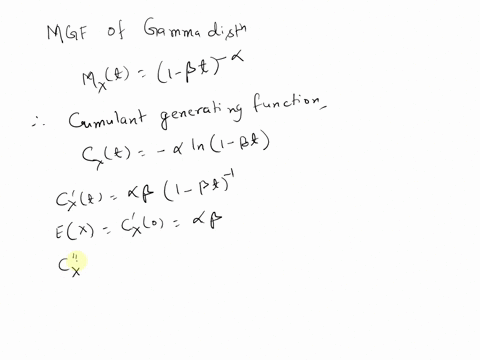 MGF of Gamma distn
Mx(t) = (1-βt)^-α
∴ Cumulant generating function
Cx(t) = -α ln(1-βt)
C'x(t) = αβ (1-βt)^-1
E(X) = C'x(0) = αβ
C''x